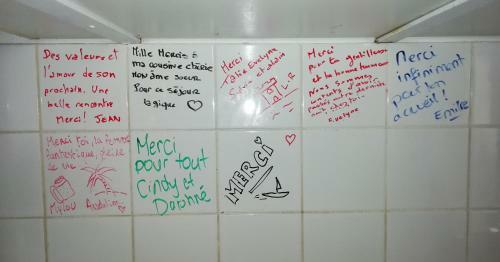 Des valeurs et
l'amour de son
prochain. Une
belle rencontre
Merci! JEAN
Mille Mercis à
ma cousine chérie
mon âme soeur
Pour ce séjour
magique
Merci
Tatie Evelyne
Merci
pour ta gentillesse
et ta bonne humeur
Nous sommes
Evelyne
Merci
infiniment
par ton
accueil!
Emire
Merci Toi, la femme
fantastique,
de vie
Mylou
Merci
pour tout
Cindy et
MERCI